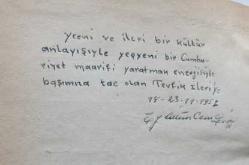 yeni ve ileri bir kültür
anlayışiyle yepyeni bir Cumhu-
riyet maarifi yaratman energisiyle
başımıza tac olan Tevfik İleri'ye
18-23-11-1951